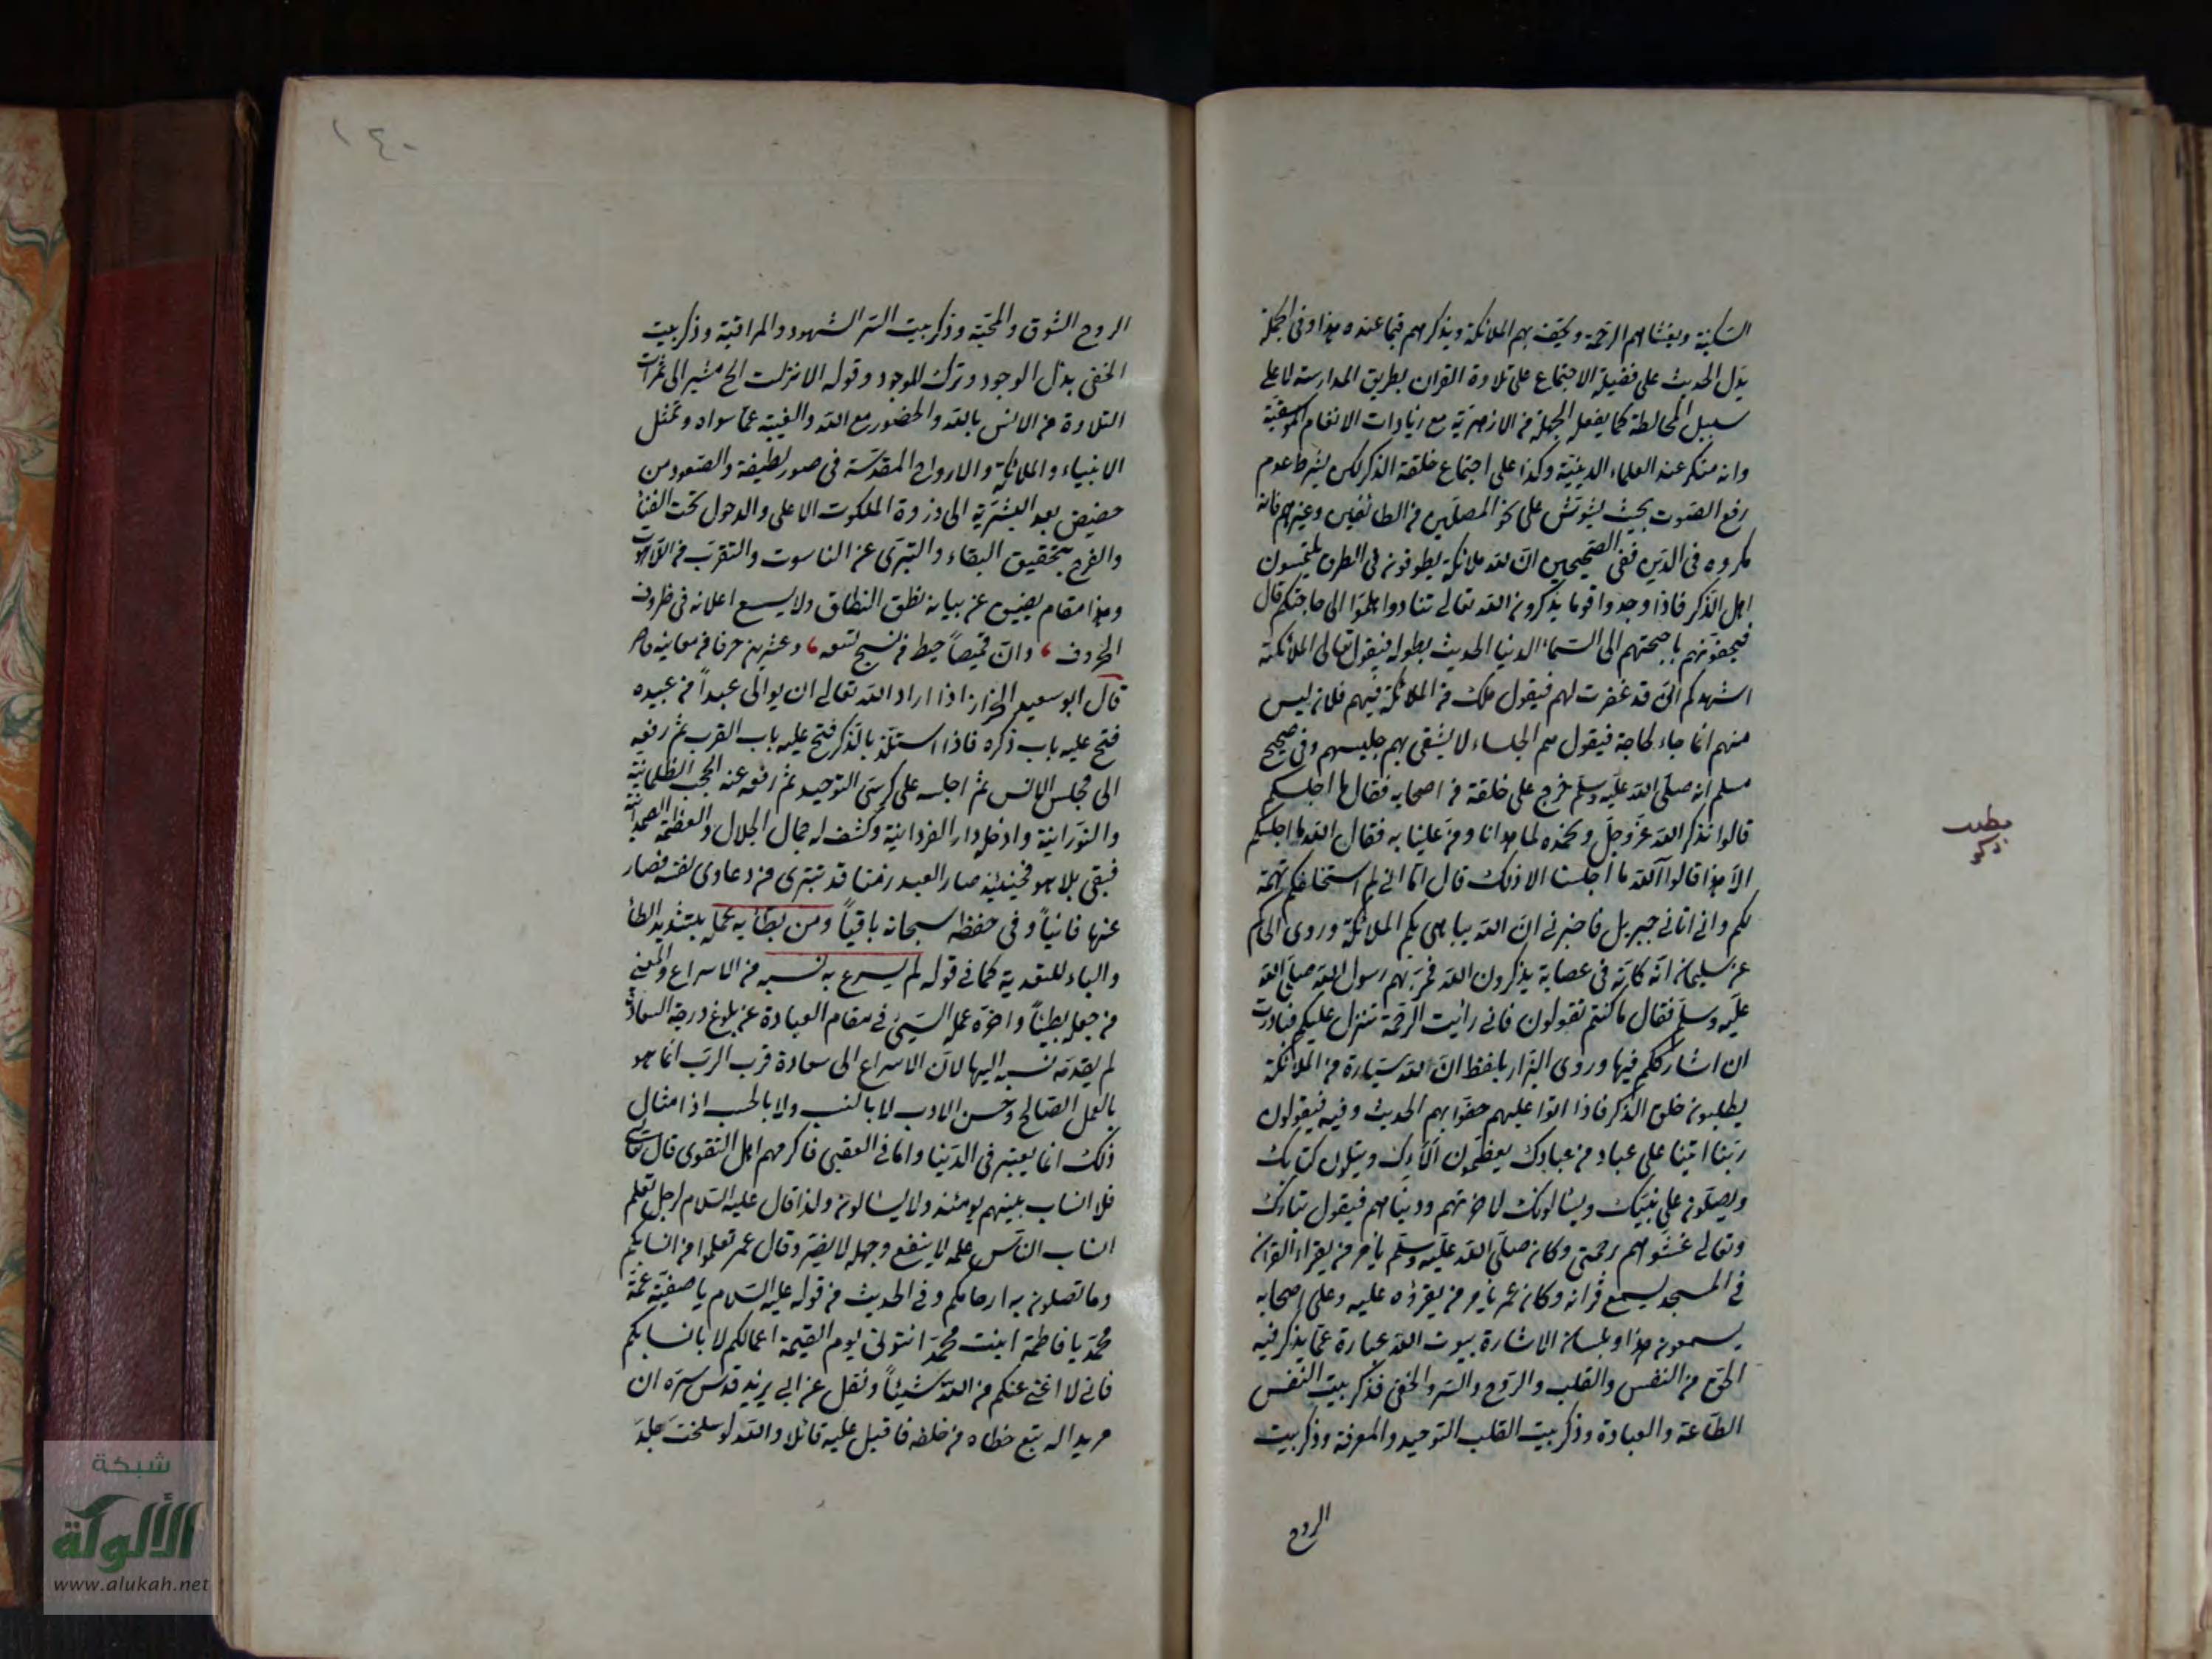 السكينة ويغشاهم الرحمة وتحف بهم الملائكة ويذكرهم فيما عنده هذا وفي الجملة
يدل الحديث على فضيلة الاجتماع على تلاوة القران بطريق المدارسة لا على
سبيل المخالطة كما يفعل الجهلة من الازهرية مع زيادات الانغام الموسقية
وانه منكر عند العلماء الدينية وكذا على اجتماع حلقة الذكر لكن بشرط عدم
رفع الصوت بحيث يشوش على نحو المصلين من الطائفين وغيرهم فانه
مكروه في الدين ففي الصحيحين ان لله ملائكة يطوفون في الطرق يلتمسون
اهل الذكر فاذا وجدوا قوما يذكرون الله تعالى تنادوا هلموا الى حاجتكم قال
فيحفونهم باجنحتهم الى السماء الدنيا الحديث بطوله فيقول تعالى الملائكته
اشهدكم اني قد غفرت لهم فيقول ملك من الملائكة فيهم فلان ليس
منهم انما جاء لحاجة فيقول هم الجلساء لا يشقى بهم جليسهم وفي صحيح
مسلم انه صلى الله عليه وسلم خرج على حلقة من اصحابه فقال ما اجلسكم
قالوا نذكر الله عز وجل ونحمده لما هدانا ومن علينا به فقال الله ما اجلسكم
الا هذا قالوا آلله ما اجلسنا الا ذلك قال اما اني لم استحلفكم تهمة
لكم واني اتاني جبريل فاخبرني ان الله يباهي بكم الملائكة وروى الحاكم
عن سليمان انه كان في عصابة يذكرون الله فمر بهم رسول الله صلى الله
عليه وسلم فقال ما كنتم تقولون فاني رأيت الرحمة تنزل عليكم فبادرت
ان اشارككم فيها وروى البزار بلفظ ان لله سيارة من الملائكة
يطلبون حلق الذكر فاذا اتوا عليهم حفوا بهم الحديث وفيه فيقولون
ربنا اتينا على عباد من عبادك يعظمون آلاءك ويتلون كتابك
ويصلون على نبيك ويسألونك لاخرتهم ودنياهم فيقول تبارك
وتعالى غشوهم رحمتي وكان صلى الله عليه وسلم يأمر من يقرأ القران
في المسجد يسمع قرانه وكان عمر يأمر من يقرؤه عليه وعلى اصحابه
يسمعون هذا وبلسان الاشارة بيوت الله عبارة عما يذكر فيه
الحق من النفس والقلب والروح والسر والخفي فذكر بيت النفس
الطاعة والعبادة وذكر بيت القلب التوحيد والمعرفة وذكر بيت
الروح
مطلب
ذكر
١٤٠
الروح الشوق والمحبة وذكر بيت السر الشهود والمراقبة وذكر بيت
الخفي بذل الوجود وترك الموجود وقوله الا نزلت الخ مشير الى ثمرات
التلاوة من الانس بالله والحضور مع الله والغيبة عما سواه وتمثل
الانبياء والملائكة والارواح المقدسة في صور لطيفة والصعود من
حضيض بعد البشرية الى ذروة الملكوت الاعلى والدخول تحت الفناء
والفرح بتحقيق البقاء والتبرى عن الناسوت والتقرب من اللاهوت
وهذا مقام يضيق عن بيانه نطق النطاق ولا يسع اعلانه في ظروف
الحروف وان قميصا خيط من نسج تسعه وعشرين حرفا من معانيه قاصر
قال ابو سعيد الخراز اذا اراد الله تعالى ان يوالى عبدا من عبيده
فتح عليه باب ذكره فاذا استلذ بالذكر فتح عليه باب القرب ثم رفعه
الى مجلس الانس ثم اجلسه على كرسي التوحيد ثم رفع عنه الحجب الظلمانية
والنورانية وادخله دار الفردانية وكشف له جمال الجلال والعظمة الصمدانية
فبقي بلا هو فحينئذ صار العبد زمنا قد تبترى من دعاوى نفسه فصار
عنها فانيا وفي حفظه سبحانه باقيا ومن بطأ به عمله بتشديد الطا
والباء للتعدية كما في قوله لم يسرع به نسبه من الاسراع والمعنى
من جعله بطيئا واخره عمله السيئ في مقام العبادة عن بلوغ درجة السعادة
لم يقدمه نسبه اليها لان الاسراع الى سعادة قرب الرب انما هو
بالعمل الصالح وحسن الادب لا بالنسب ولا بالحسب اذ امثال
ذلك انما يعتبر في الدنيا واما في العقبى فاكرمهم اهل التقوى قال تعالى
فلا انساب بينهم يومئذ ولا يتسالون ولذا قال عليه السلام لرجل تعلم
انساب الناس علمه لا ينفع وجهله لا يضر وقال عمر تعلموا من انسابكم
وما تصلون به ارحامكم وفي الحديث من قوله عليه السلام يا صفية عمة
محمد يا فاطمة ابنت محمد ائتوني يوم القيمة اعمالكم لا بانسابكم
فاني لا اغني عنكم من الله شيئا ونقل عن ابي يزيد قدس سره ان
مريدا له يتبع خطاه من خلفه فاقبل عليه قائلا والله لو سلخت جلد
شبكة
الألوكة
www.alukah.net